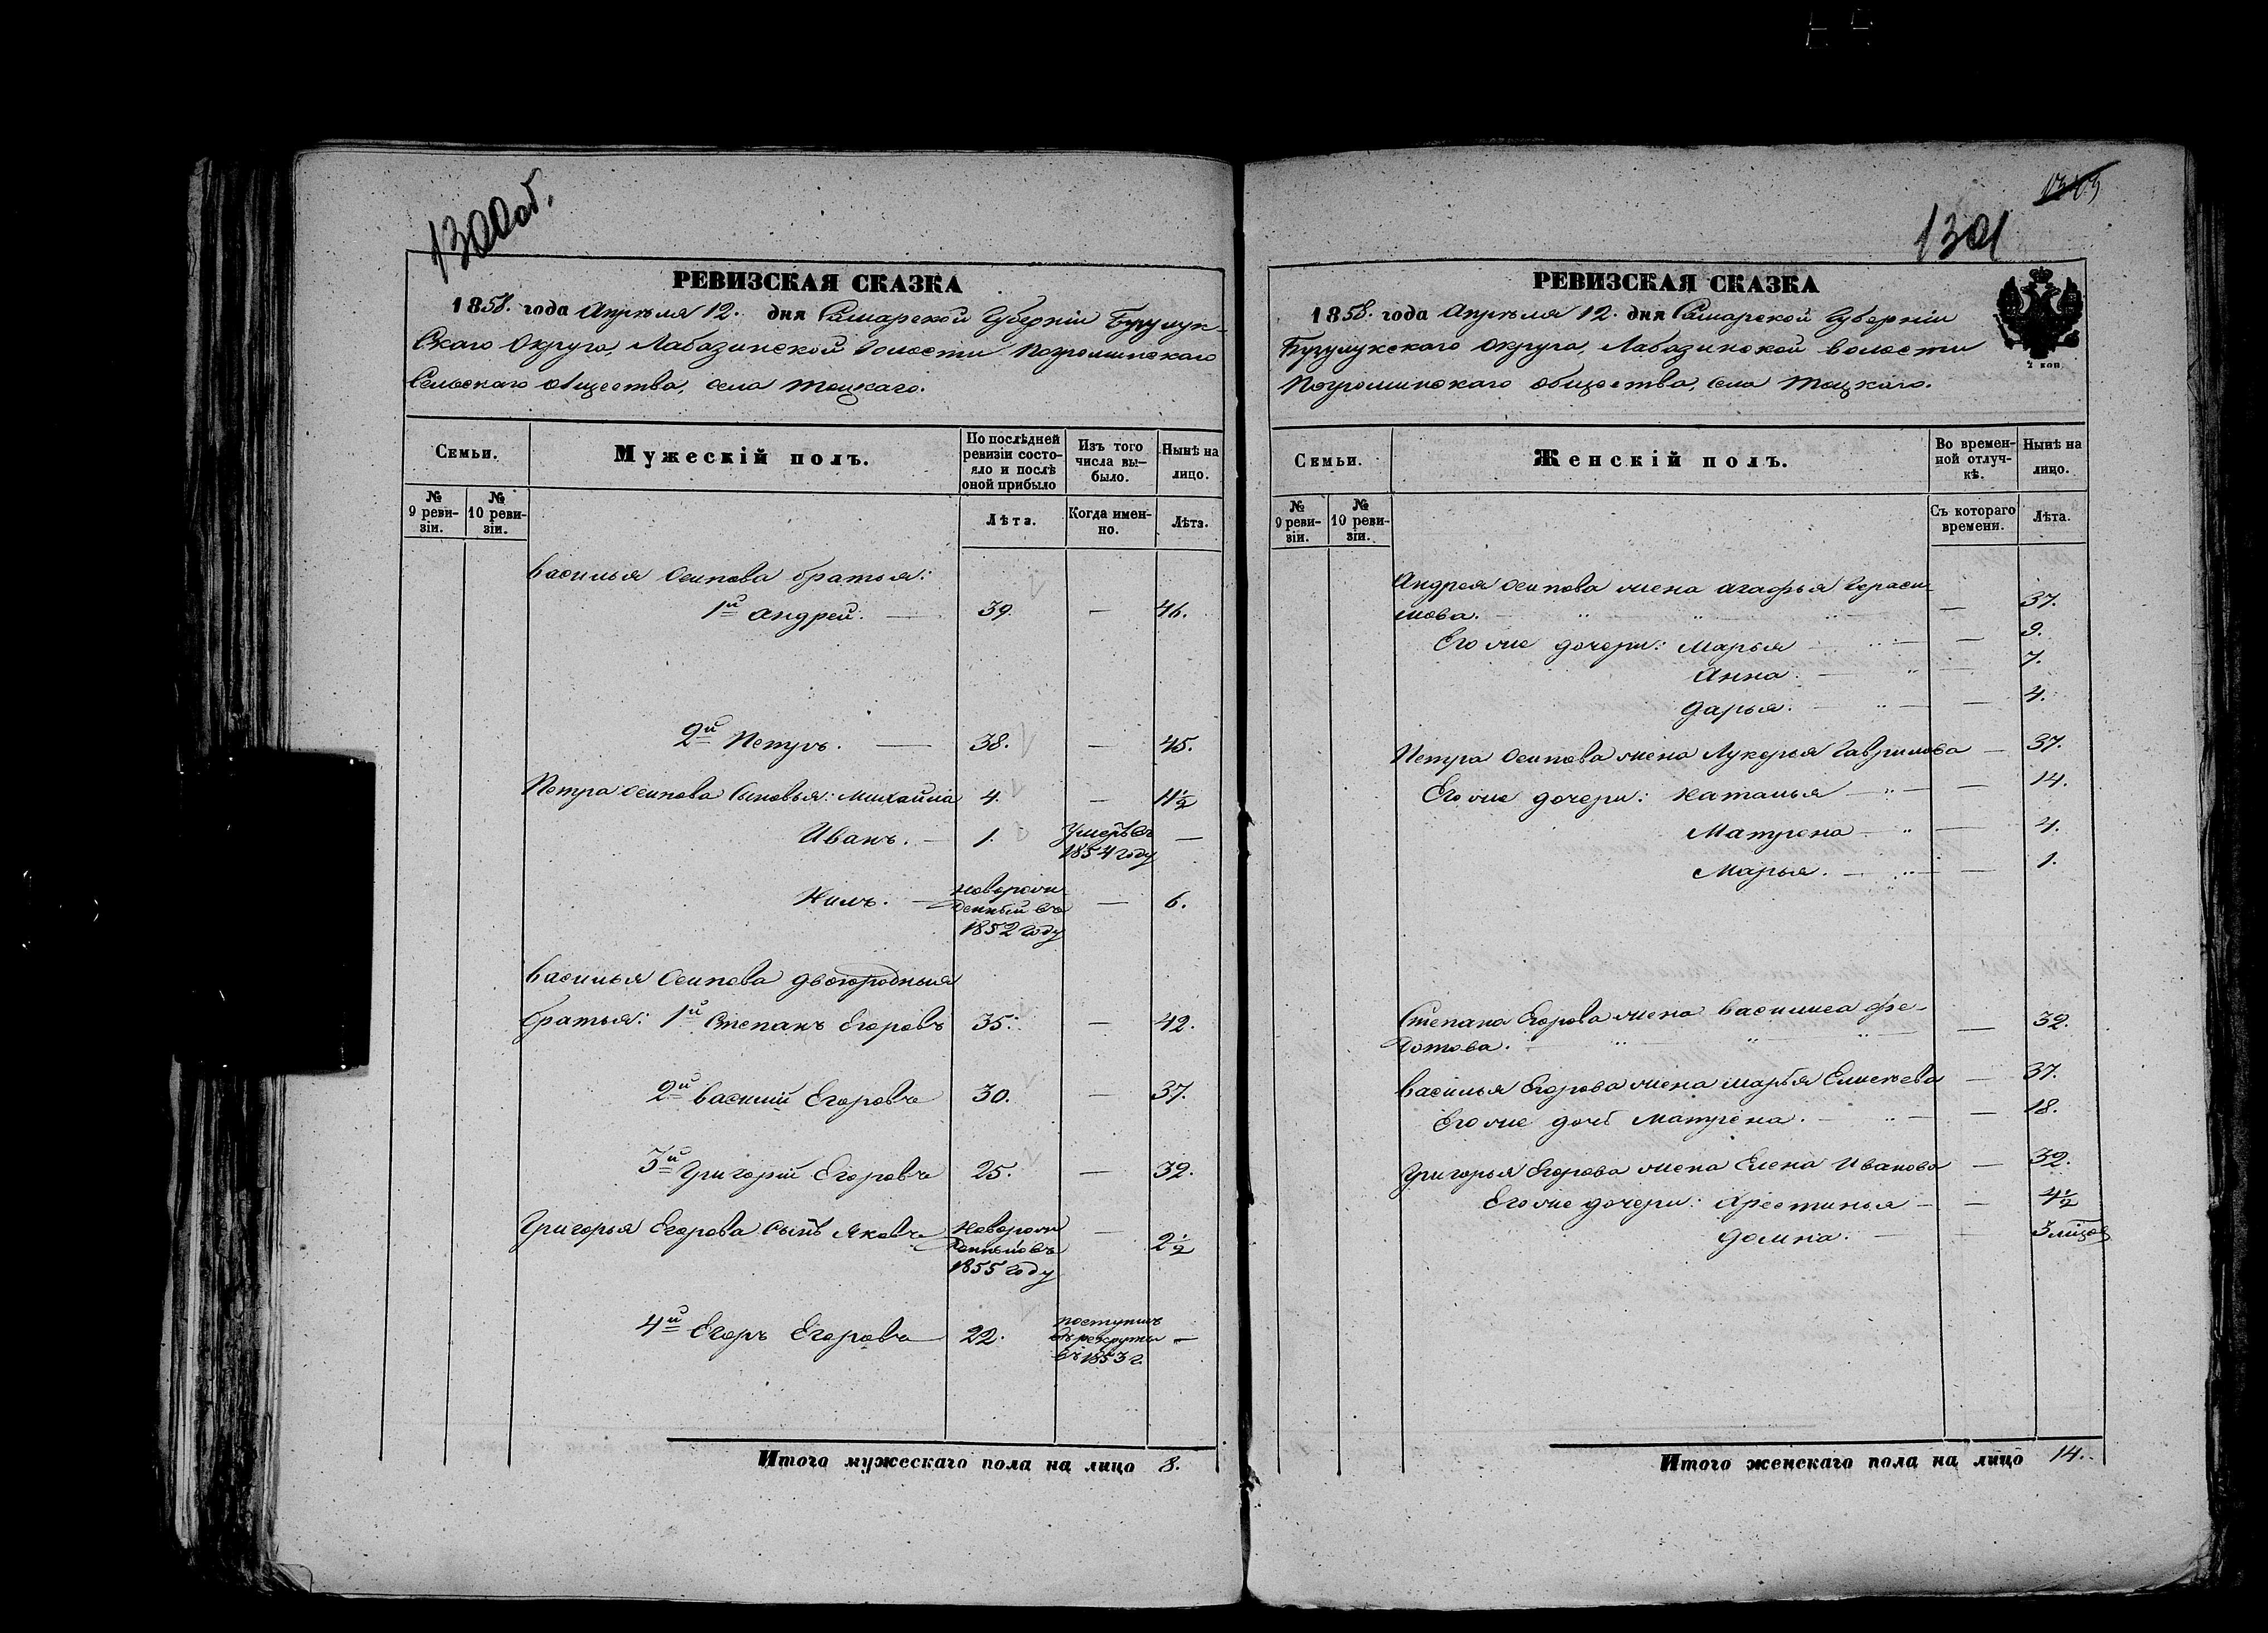 1300 об.
РЕВИЗСКАЯ СКАЗКА
1858. года Апрѣля 12. дня Самарской Губерніи Бузулук-
скаго Округа, Лабазинской волости Погроминскаго
Сельскаго общества, села Тоцкаго.
Семьи.
Мужескій полъ.
По послѣдней ревизіи состояло и послѣ оной прибыло
Изъ того числа выбыло.
Нынѣ на лицо.
№ 9 ревизіи.
№ 10 ревизіи.
Лѣта.
Когда именно.
Лѣта.
Василья Осипова братья:
1й Андрей. — 39. — 46.
2й Петръ. — 38. — 45.
Петра Осипова сыновья: Михайла 4. — 11½
Иванъ. — 1. Умеръ въ 1854 году —
Нилъ. — новорожденный въ 1852 году — 6.
Василья Осипова двоюродныя
братья: 1й Степанъ Егоровъ 35. — 42.
2й Василий Егоровъ 30. — 37.
3й Григорій Егоровъ 25. — 32.
Григорья Егорова сынъ Яковъ новорожденный въ 1855 году — 2½
4й Егоръ Егоровъ 22. поступилъ въ рекруты въ 1853 г. —
Итого мужескаго пола на лицо 8.
1301
РЕВИЗСКАЯ СКАЗКА
1858. года Апрѣля 12. дня Самарской Губерніи
Бузулукскаго Округа, Лабазинской волости
Погроминскаго общества, села Тоцкаго.
2 коп.
Семьи.
Женскій полъ.
Во временной отлучкѣ.
Нынѣ на лицо.
№ 9 ревизіи.
№ 10 ревизіи.
Съ котораго времени.
Лѣта.
Андрея Осипова жена Агафья Гераси-
мова. — — 37.
Его же дочери: Марья — — 9.
Анна. — — 7.
Дарья. — — 4.
Петра Осипова жена Лукерья Гаврилова — 37.
Его же дочери: Наталья — — 14.
Матрена — — 4.
Марья. — — 1.
Степана Егорова жена Василиса Фе-
дотова. — — 32.
Василья Егорова жена Марья Елисѣева — 37.
Его же дочь Матрена. — — 18.
Григорья Егорова жена Елена Иванова — 32.
Его же дочери: Хрестинья — — 4½
Домна. — — 3 мѣсяц
Итого женскаго пола на лицо 14.